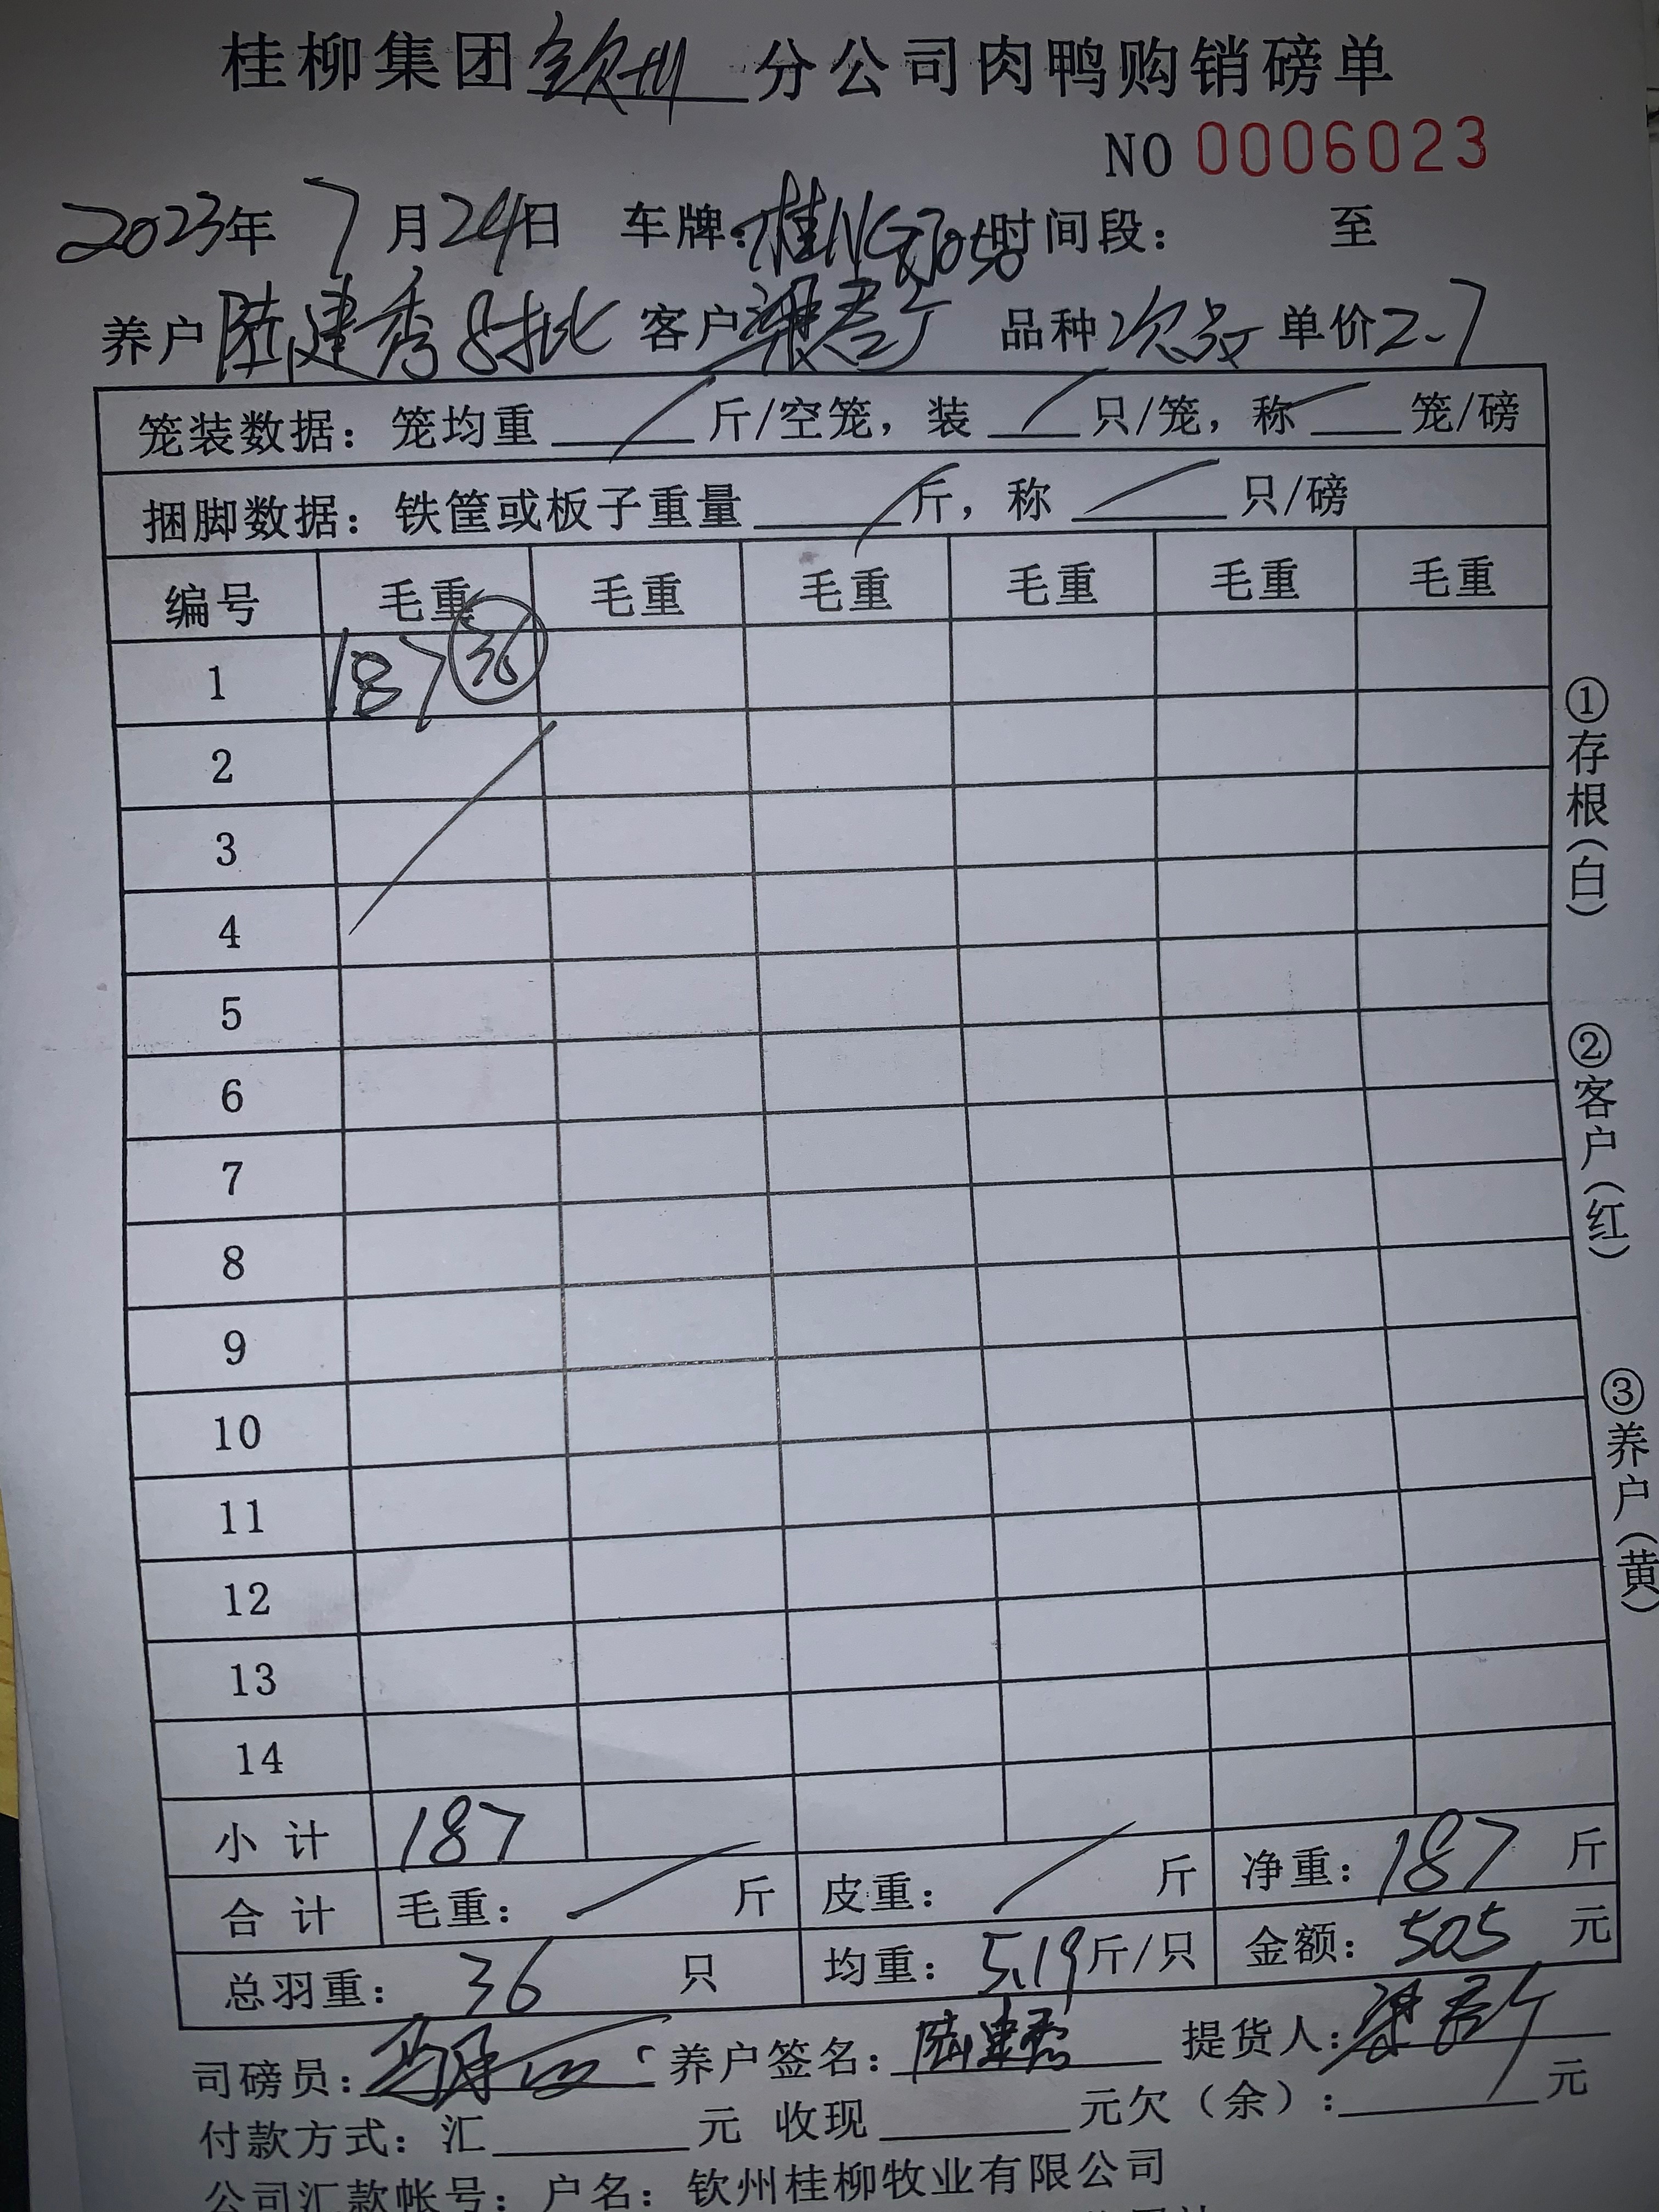 桂柳集团钦州分公司肉鸭购销磅单
NO 0006023
2023年 7月24日 车牌: 时间段: 至
养户 陆建秀8批 客户 品种 次品 单价2.7
笼装数据: 笼均重 斤/空笼, 装 只/笼, 称 笼/磅
捆脚数据: 铁筐或板子重量 斤, 称 只/磅
编号 毛重 毛重 毛重 毛重 毛重 毛重
1 187 36
2
3
4
5
6
7
8
9
10
11
12
13
14
小计 187
合计 毛重: 斤 皮重: 斤 净重: 187 斤
总羽重: 36 只 均重: 5.19斤/只 金额: 505 元
司磅员: 养户签名: 陆建秀 提货人:
付款方式: 汇 元 收现 元欠(余): 元
公司汇款帐号: 户名: 钦州桂柳牧业有限公司
①存根(白)
②客户(红)
③养户(黄)